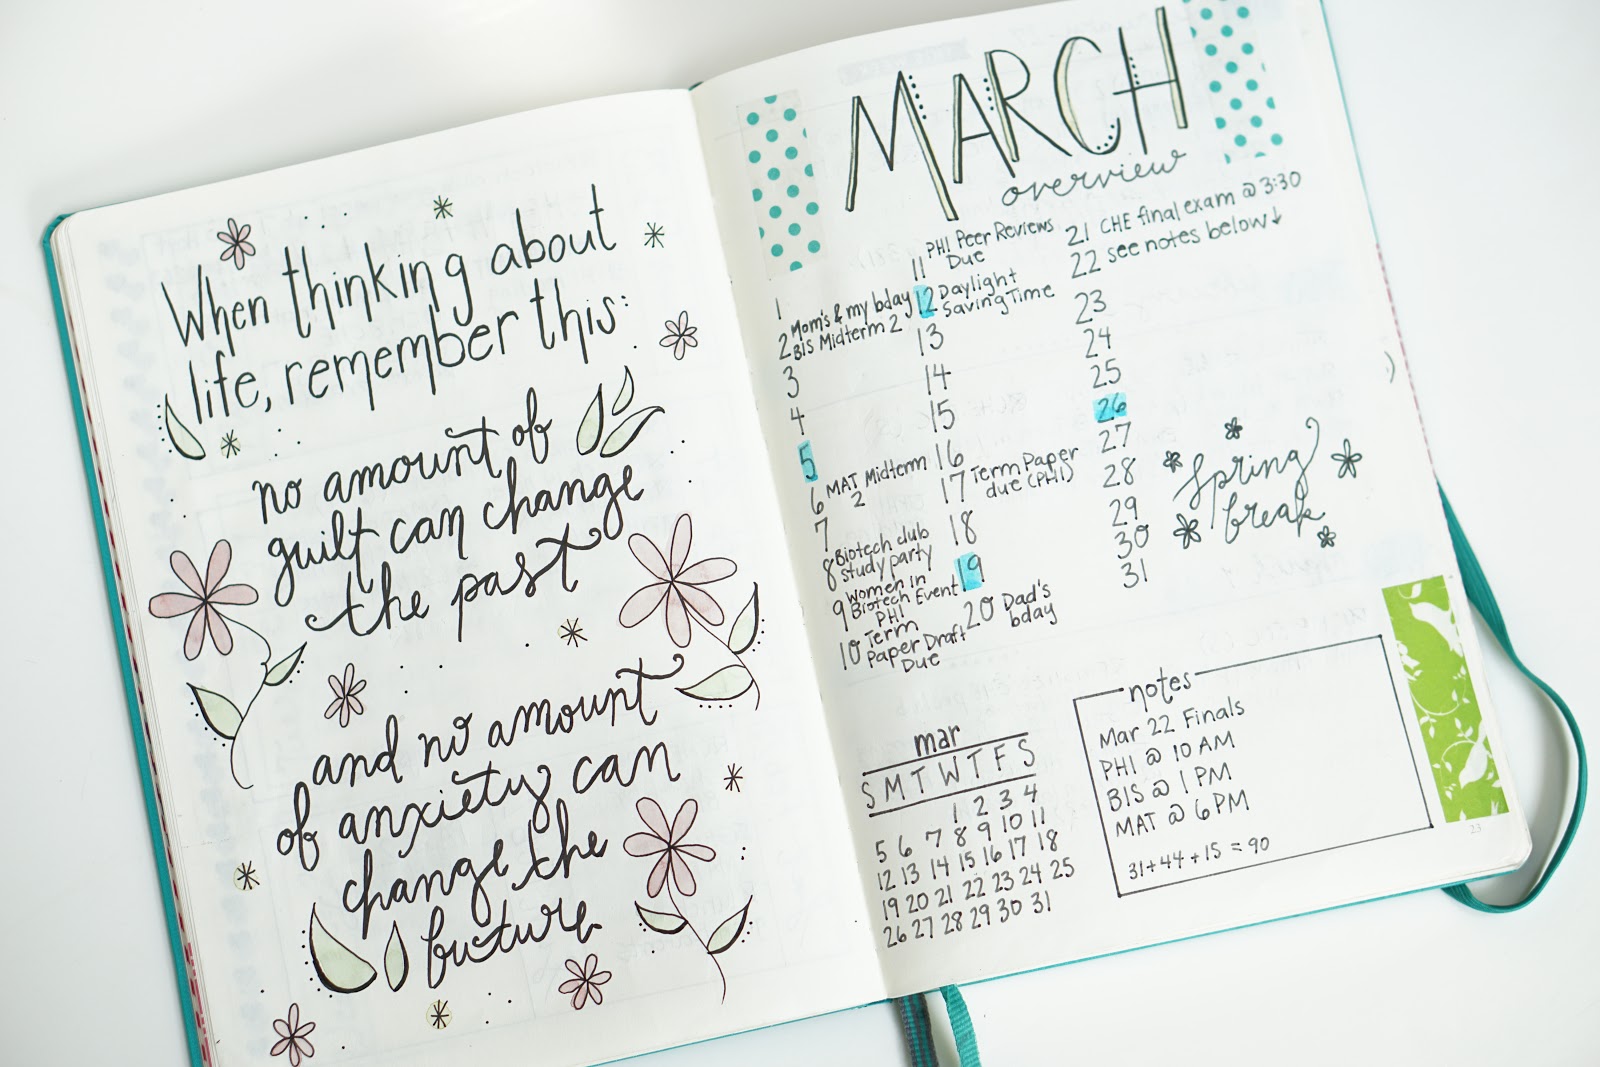 When thinking about
life, remember this:
no amount of
guilt can change
the past
and no amount
of anxiety can
change the
future
MARCH
overview
1
2 Mom's & my bday
BIS Midterm 2
3
4
5
6 MAT Midterm
2
7
8 Biotech club
study party
9 Women in
Biotech Event
10 PHI
Term
Paper Draft
Due
11 PHI Peer Reviews
Due
12 Daylight
Saving Time
13
14
15
16
17 Term Paper
due (PHI)
18
19
20 Dad's
bday
21 CHE final exam @ 3:30
22 see notes below ↓
23
24
25
26
27
28
29
30
31
Spring
break
mar
S M T W T F S
1 2 3 4
5 6 7 8 9 10 11
12 13 14 15 16 17 18
19 20 21 22 23 24 25
26 27 28 29 30 31
notes
Mar 22 Finals
PHI @ 10 AM
BIS @ 1 PM
MAT @ 6 PM
31+44+15 = 90
23